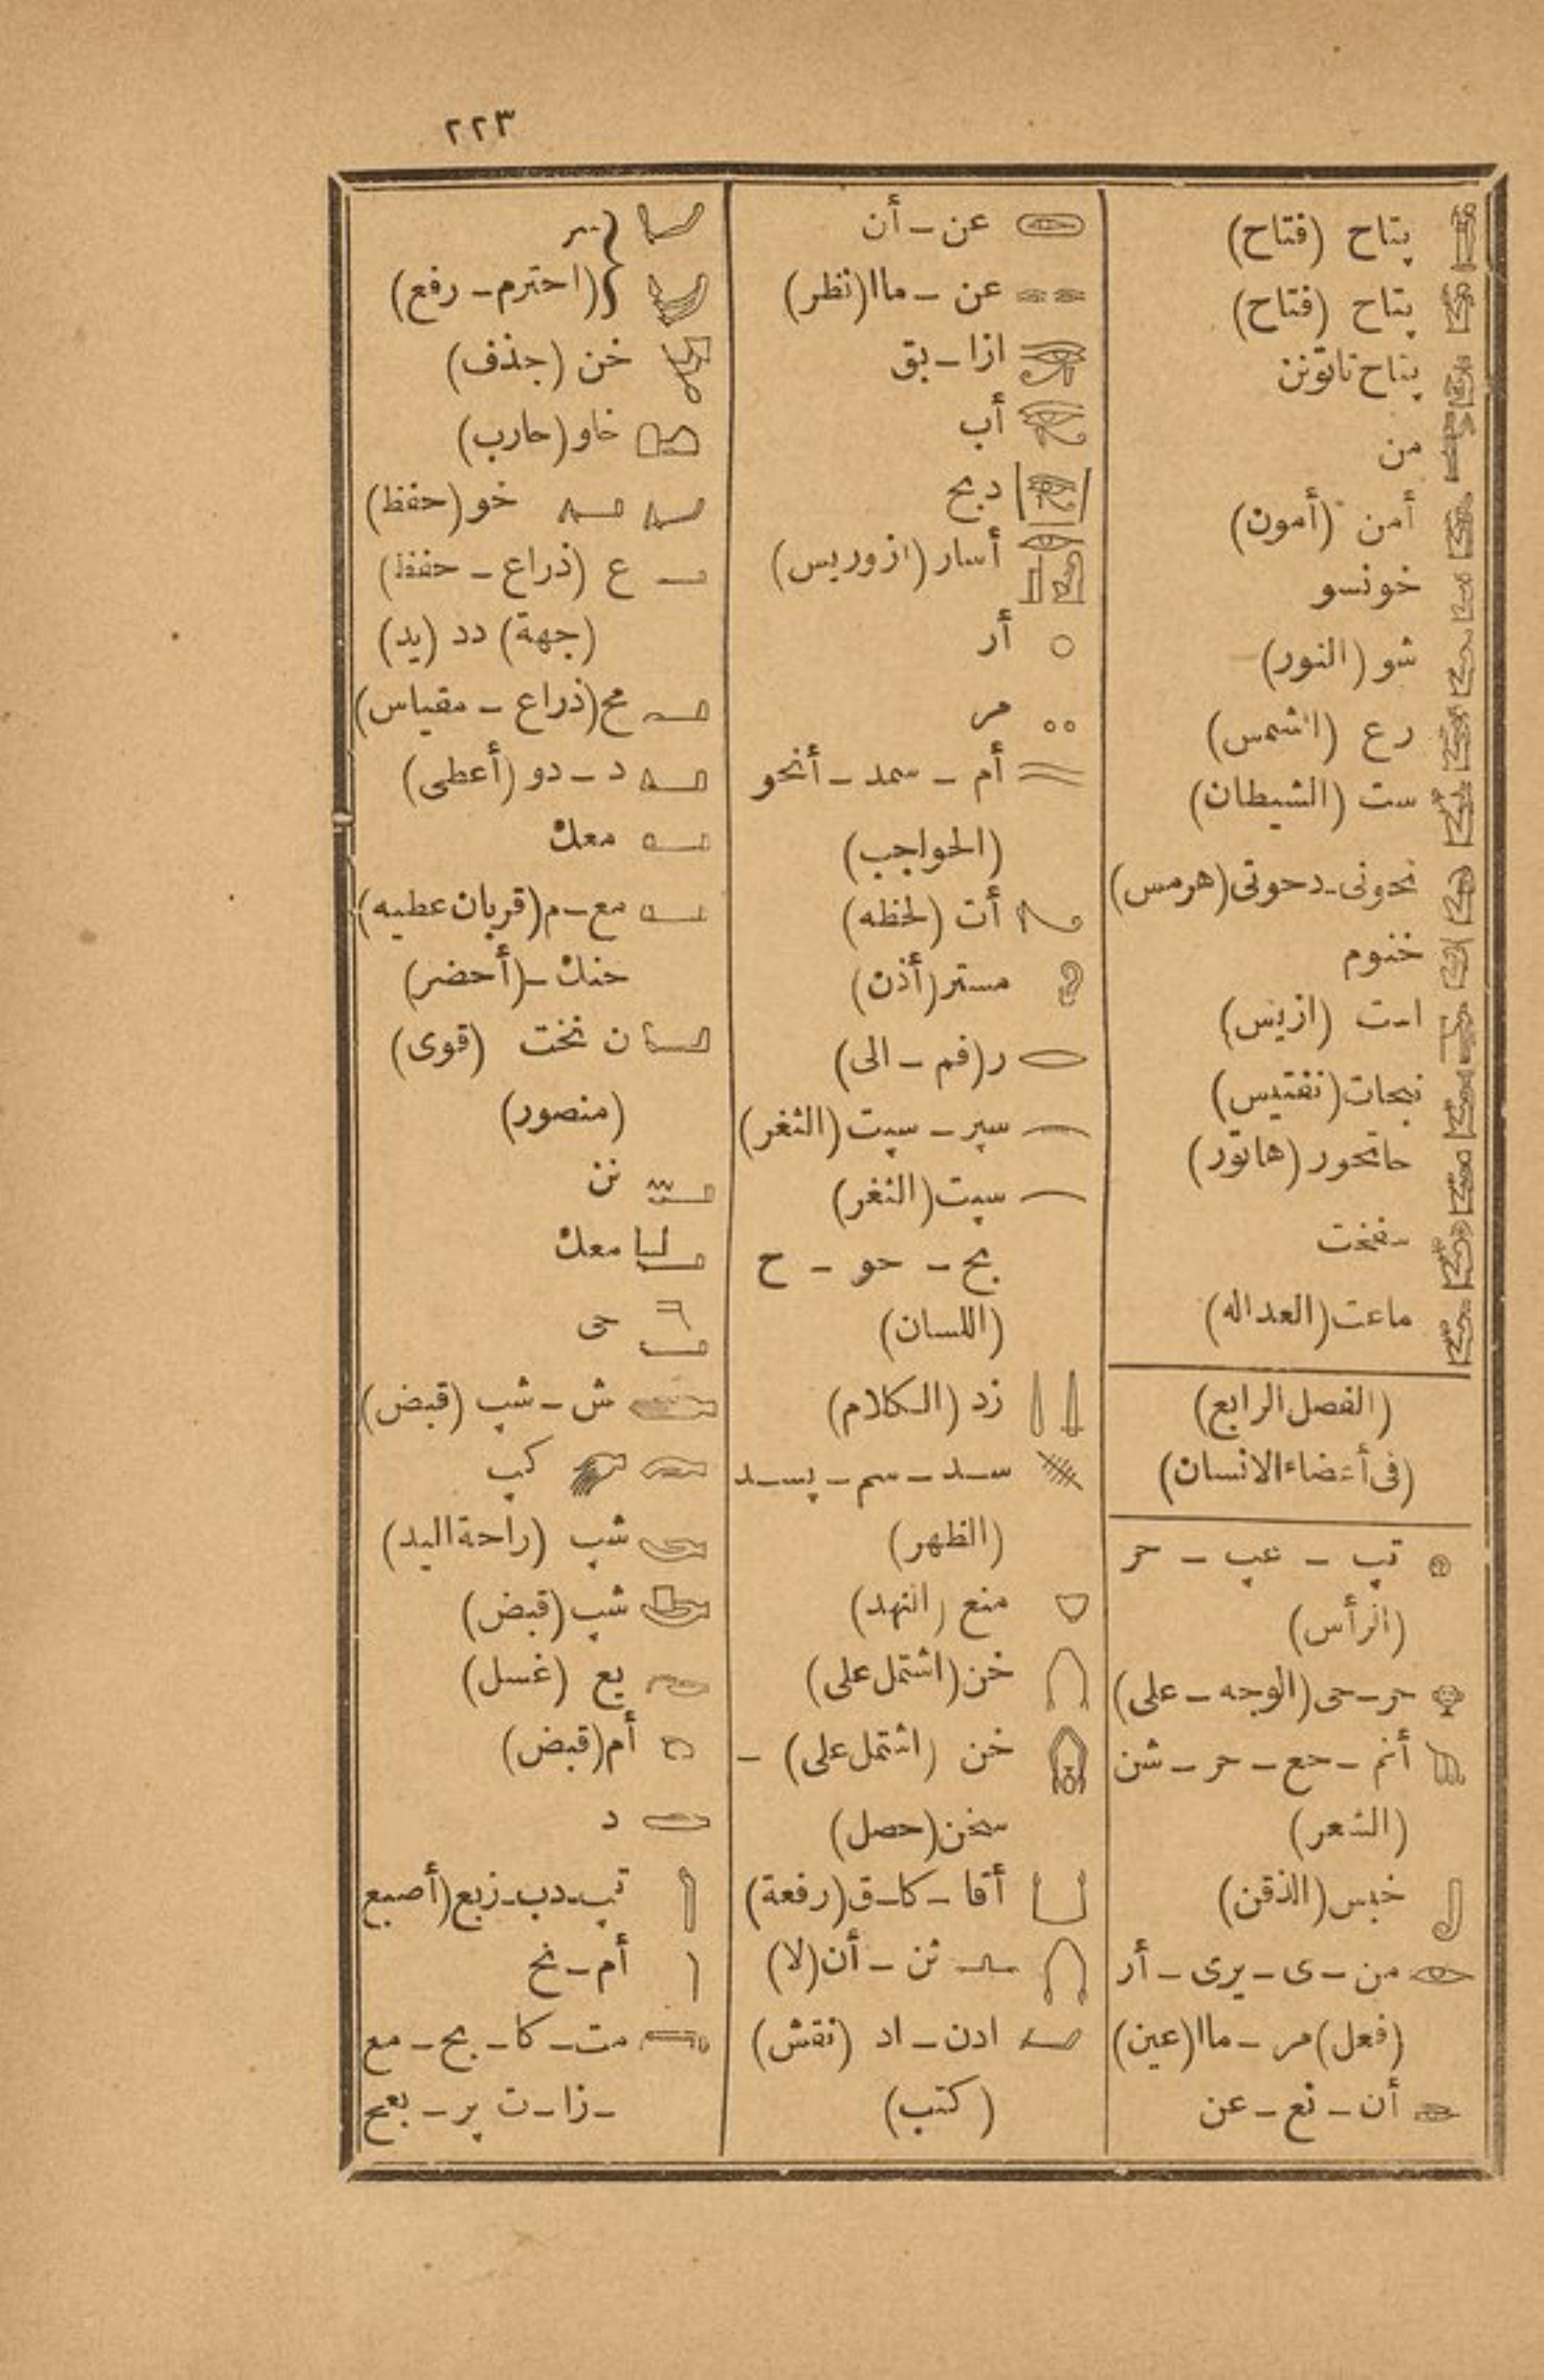 ٢٢٣
پتاح (فتاح)
پتاح (فتاح)
پتاح تاتونن
من
أمن (أمون)
خونسو
شو (النور)
رع (الشمس)
ست (الشيطان)
تحوتى-دحوتى (هرمس)
خنوم
است (ازيس)
نبحات (نفتيس)
حاتحور (هاتور)
ماعت (العداله)
(الفصل الرابع)
(فى أعضاء الانسان)
تپ - عپ - حر
(الرأس)
حر-حى (الوجه - على)
أنم - حع - حر - شن
(الشعر)
خبس (الذقن)
من - ى - يرى - أر
(فعل) مر - ماا (عين)
أن - نع - عن
عن - أن
عن - ماا (نظر)
ازا - بق
أب
دبح
أسار (ازوريس)
أر
مر
أم - سمد - أنحو
(الحواجب)
أت (لحظه)
مستر (أذن)
ر (فم - الى)
سپر - سپت (الثغر)
سپت (الثغر)
بح - حو - ح
(اللسان)
زد (الكلام)
سد - سم - پسد
(الظهر)
منع (النهد)
خن (اشتمل على)
خن (اشتمل على) -
سخن (حصل)
أقا - كا-ق (رفعة)
نن - أن (لا)
ادن - اد (نقش)
(كتب)
(احترم - رفع)
خن (جذف)
خاو (حارب)
خو (حفظ)
ع (ذراع - حفظ)
(جهة) دد (يد)
مح (ذراع - مقياس)
د - دو (أعطى)
معك
مع-م (قربان عطيه)
حنك - (أحضر)
ن نخت (قوى)
(منصور)
نن
معك
حى
ش - شپ (قبض)
كپ
شپ (راحة اليد)
شپ (قبض)
يع (غسل)
أم (قبض)
د
تپ-دب-زبع (أصبع
أم - نح
مت - كا - بح - مع
-زا-ت پر - بعح